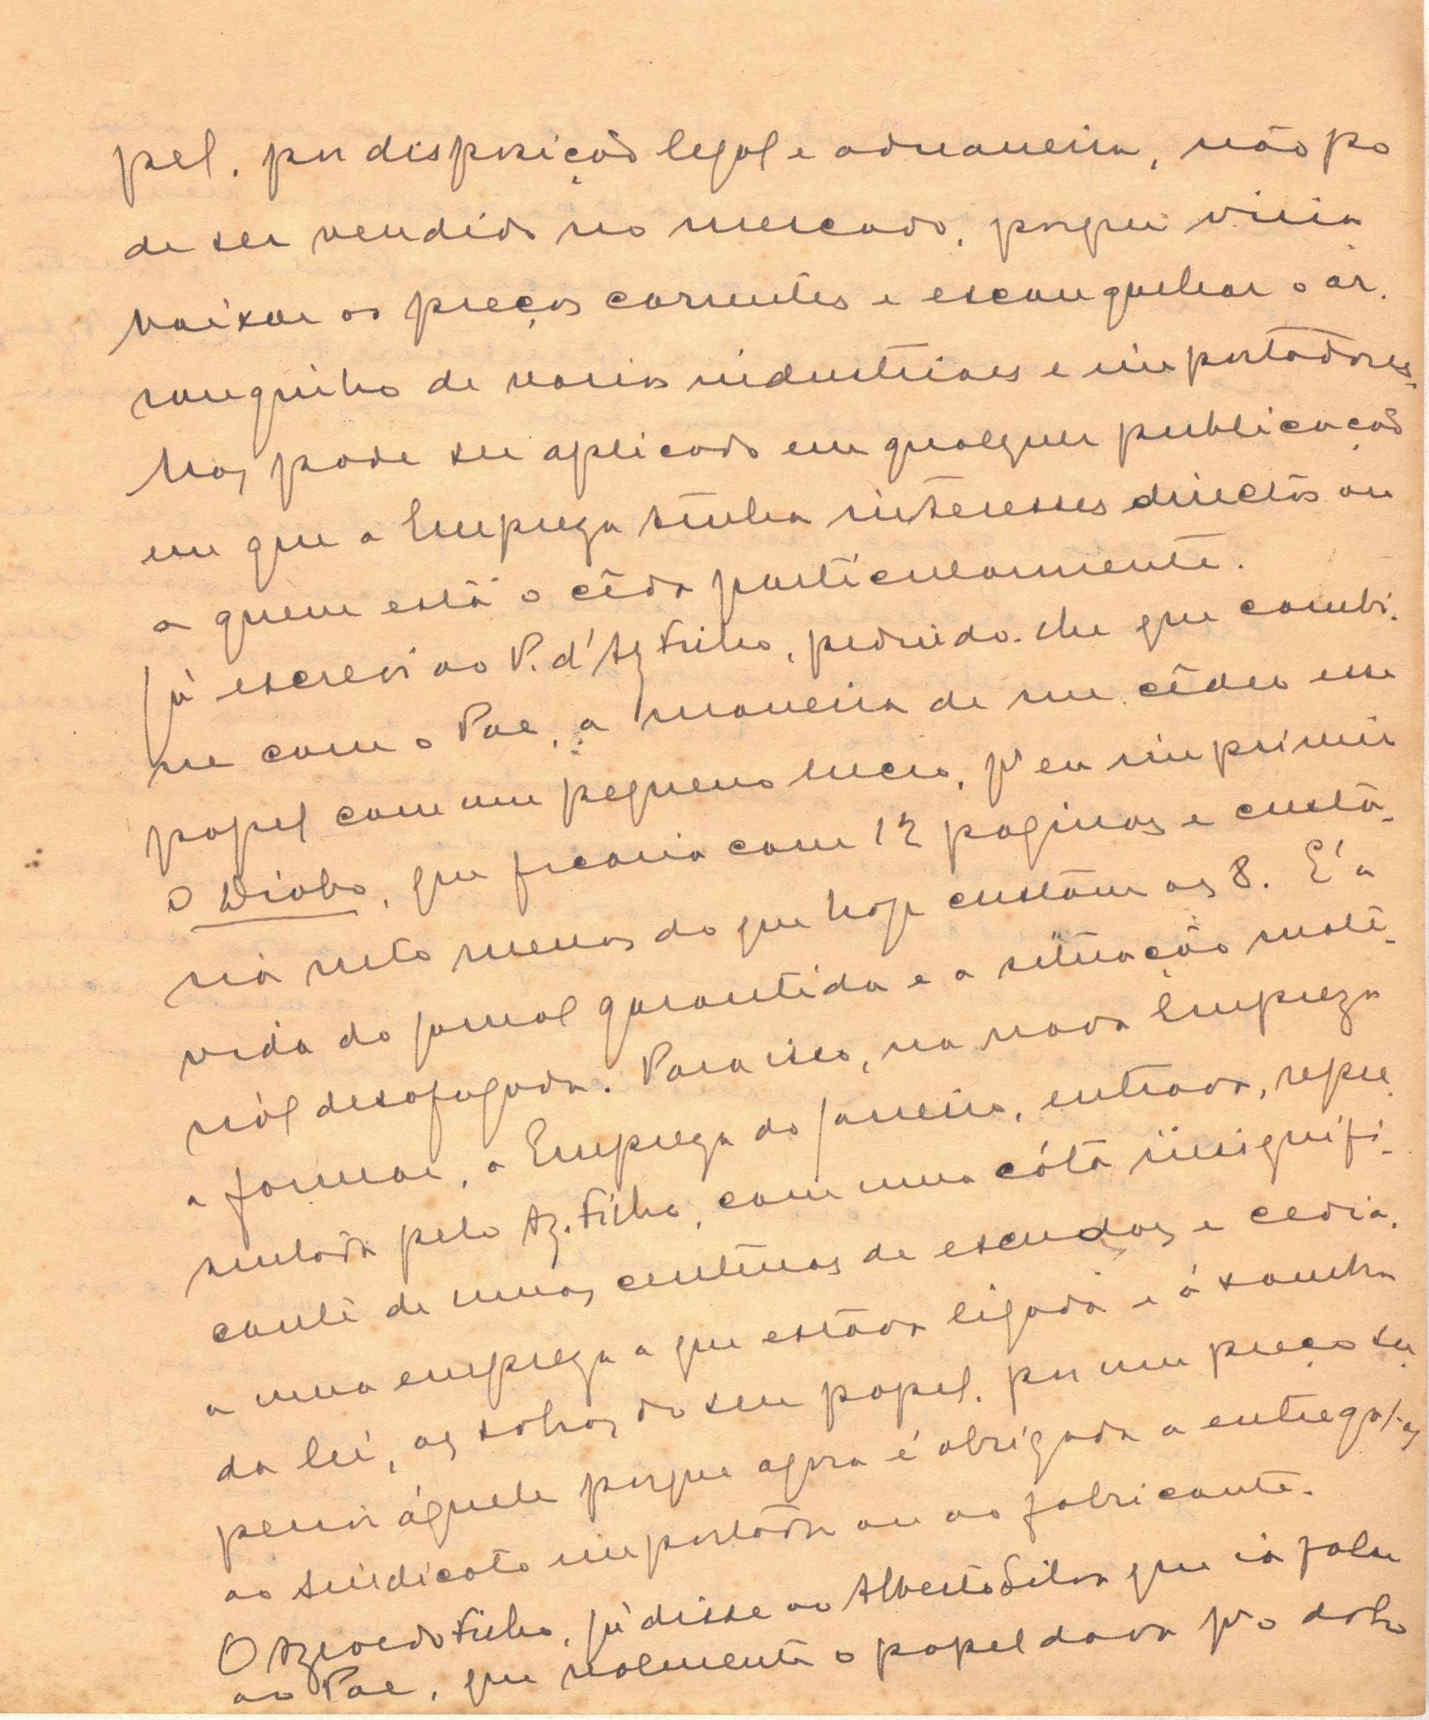 pel, por disposição legal e aduaneira, não po
de ser vendido no mercado, porque viria
baixar os preços correntes e escangalhar o ar.
ranquinho de varios industriaes e importadores.
Mas pode ser aplicado em qualquer publicação
em que a Empreza tenha interesses directos ou
a quem está o cêda particularmente.
Já escrevi ao P. d'Az. Filho, pedindo-lhe que combi.
ne com o Pae, a maneira de me cêder esse
papel com um pequeno lucro, pª eu imprimir
O Diabo, que ficaria com 12 paginas e custa-
ria mtº menos do que hoje custam as 8. E' a
vida do jornal garantida e a situação mate-
rial desafogada. Para isso, na nova Empreza
a formar, a Empreza do Janeiro, entrava, repre
sentada pelo Az. Filho, com uma cóta insignifi-
cante de umas centenas de escudos e cedia,
a uma empreza a que estava ligada e á sombra
da lei, as sobras do seu papel, por um preço su
perior áquele porque agora é obrigada a entregal-as
ao sindicato importador ou ao fabricante.
O Azevedo Filho, já disse ao Alberto Silva que ia falar
ao Pae, que realmente o papel dava pª o dobro